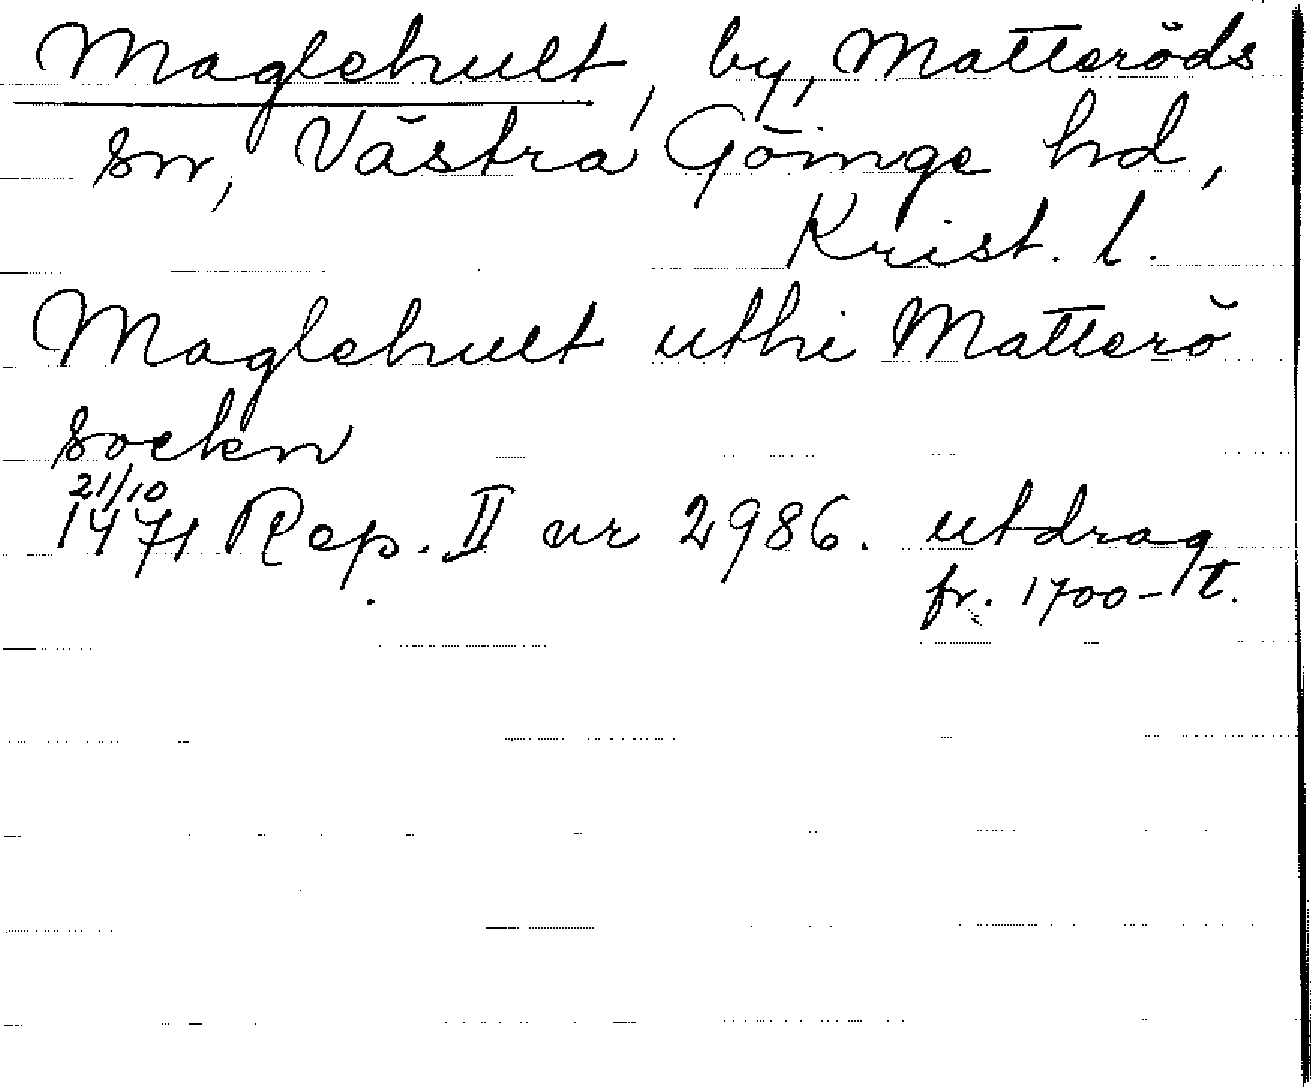 Maglehult, by, Matteröds
sn, Västra Göinge hd,
Krist. l.
Maglehult uthi Matterö
sockn
21/10
1471 Rep. II nr 2986. utdrag
fr. 1700-t.